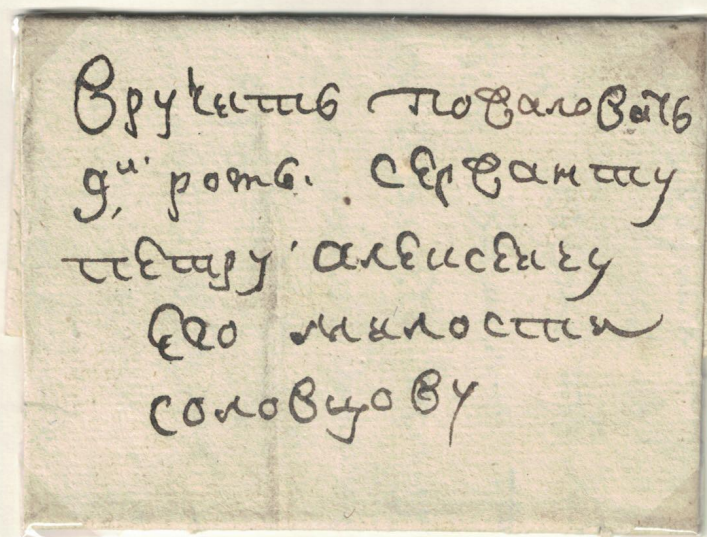 Вручить пожаловать
д.й роты. сержанту
петру алексеичу
его милости
соловцову